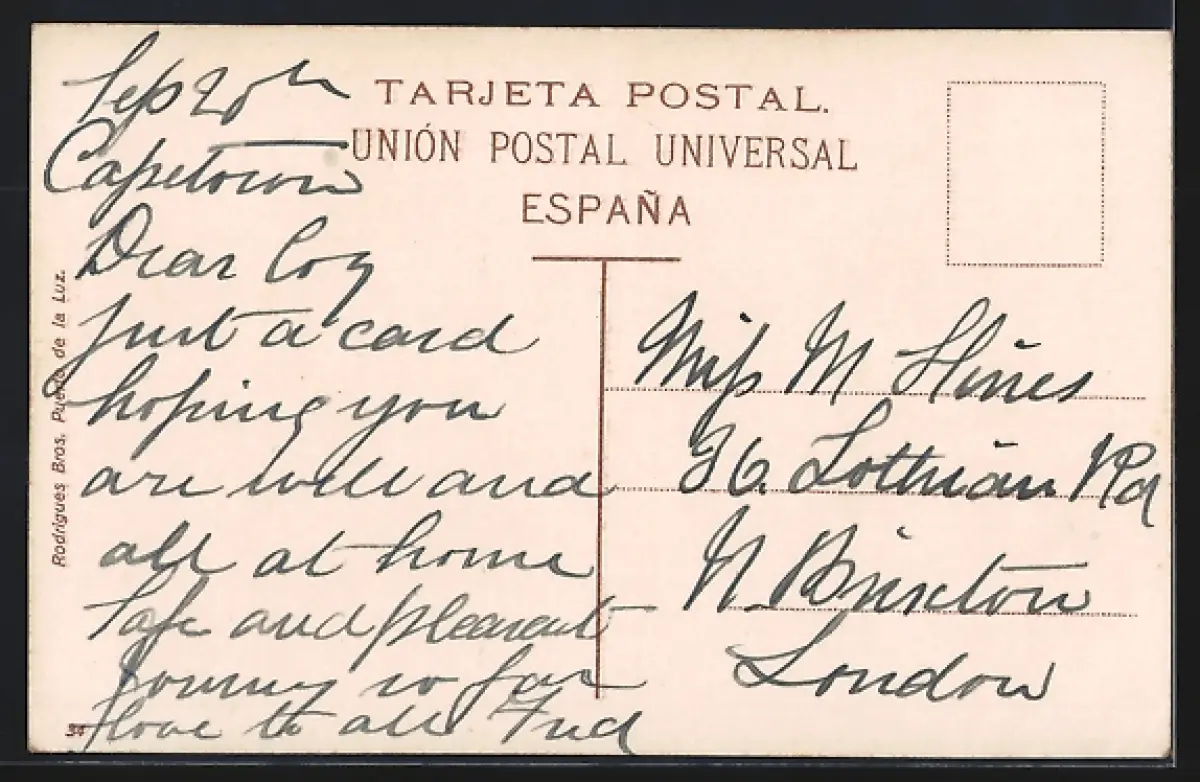 Sep 20th
Capetown
Dear Coz
Just a card
hoping you
are well and
all at home
Safe and pleasant
journey so far
love to all Fred
TARJETA POSTAL.
UNIÓN POSTAL UNIVERSAL
ESPAÑA
Miss M Hines
36 Lothian Rd
N. Brixton
London
Rodrigues Bros. Puerto de la Luz.
34